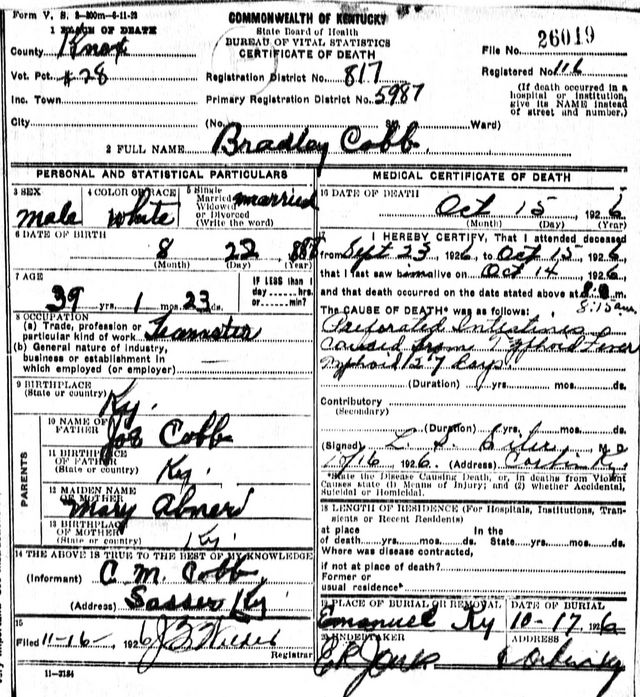 Form V. S.
COMMONWEALTH OF KENTUCKY
State Board of Health
BUREAU OF VITAL STATISTICS
CERTIFICATE OF DEATH
File No. 26019
Registered No. 116
(If death occurred in a hospital or institution, give its NAME instead of street and number.)
1 PLACE OF DEATH
County Knox
Vot. Pct. #28
Registration District No. 817
Inc. Town
Primary Registration District No. 5987
City (No. St. Ward)
2 FULL NAME Bradley Cobb
PERSONAL AND STATISTICAL PARTICULARS
3 SEX male
4 COLOR OR RACE white
5 Single Married Widowed or Divorced (Write the word) married
6 DATE OF BIRTH 8 22
(Month) (Day) (Year)
7 AGE
39 yrs. 1 mos. 23 ds.
IF LESS than 1 day hrs. or min?
8 OCCUPATION
(a) Trade, profession or particular kind of work Teamster
(b) General nature of industry, business or establishment in which employed (or employer)
9 BIRTHPLACE
(State or country) Ky.
PARENTS
10 NAME OF FATHER Joe Cobb
11 BIRTHPLACE OF FATHER
(State or country) Ky.
12 MAIDEN NAME OF MOTHER Mary
13 BIRTHPLACE OF MOTHER
(State or country) Ky.
14 THE ABOVE IS TRUE TO THE BEST OF MY KNOWLEDGE
(Informant) C. M. Cobb
(Address) Sasser Ky.
15
Filed 11-16-, 1926
Registrar
11-3184
MEDICAL CERTIFICATE OF DEATH
16 DATE OF DEATH
Oct 15, 1926
(Month) (Day) (Year)
17 I HEREBY CERTIFY, That I attended deceased
from Sept 23 1926, to Oct 15, 1926,
that I last saw him alive on Oct 14, 1926
and that death occurred on the date stated above at m.
The CAUSE OF DEATH* was as follows:
caused from Typhoid Fever
Typhoid 27 days.
(Duration) yrs. mos. ds.
Contributory
(Secondary)
(Duration) yrs. mos. ds.
(Signed) L. S. M. D.
10/16 1926. (Address) Corbin Ky.
*State the Disease Causing Death, or, in deaths from Violent Causes state (1) Means of Injury; and (2) whether Accidental, Suicidal or Homicidal.
18 LENGTH OF RESIDENCE (For Hospitals, Institutions, Transients or Recent Residents)
at place of death yrs. mos. ds. In the State yrs. mos. ds.
Where was disease contracted,
if not at place of death?
Former or
usual residence
19 PLACE OF BURIAL OR REMOVAL
Emanuel Ky
DATE OF BURIAL
10-17, 1926
20 UNDERTAKER
ADDRESS